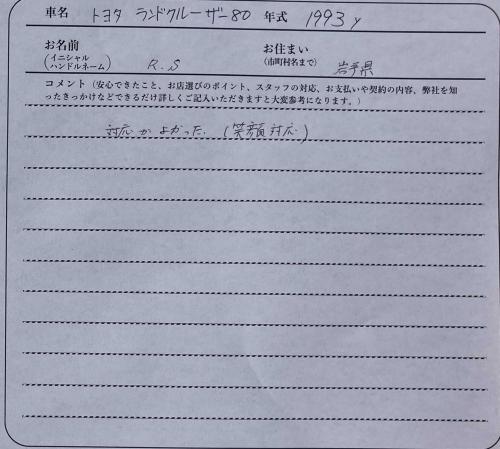 車名 トヨタ ランドクルーザー80 年式 1993y
お名前
(イニシャル
ハンドルネーム) R.S
お住まい
(市町村名まで) 岩手県
コメント(安心できたこと、お店選びのポイント、スタッフの対応、お支払いや契約の内容、弊社を知
ったきっかけなどできるだけ詳しくご記入いただきますと大変参考になります。)
対応がよかった。(笑顔対応)